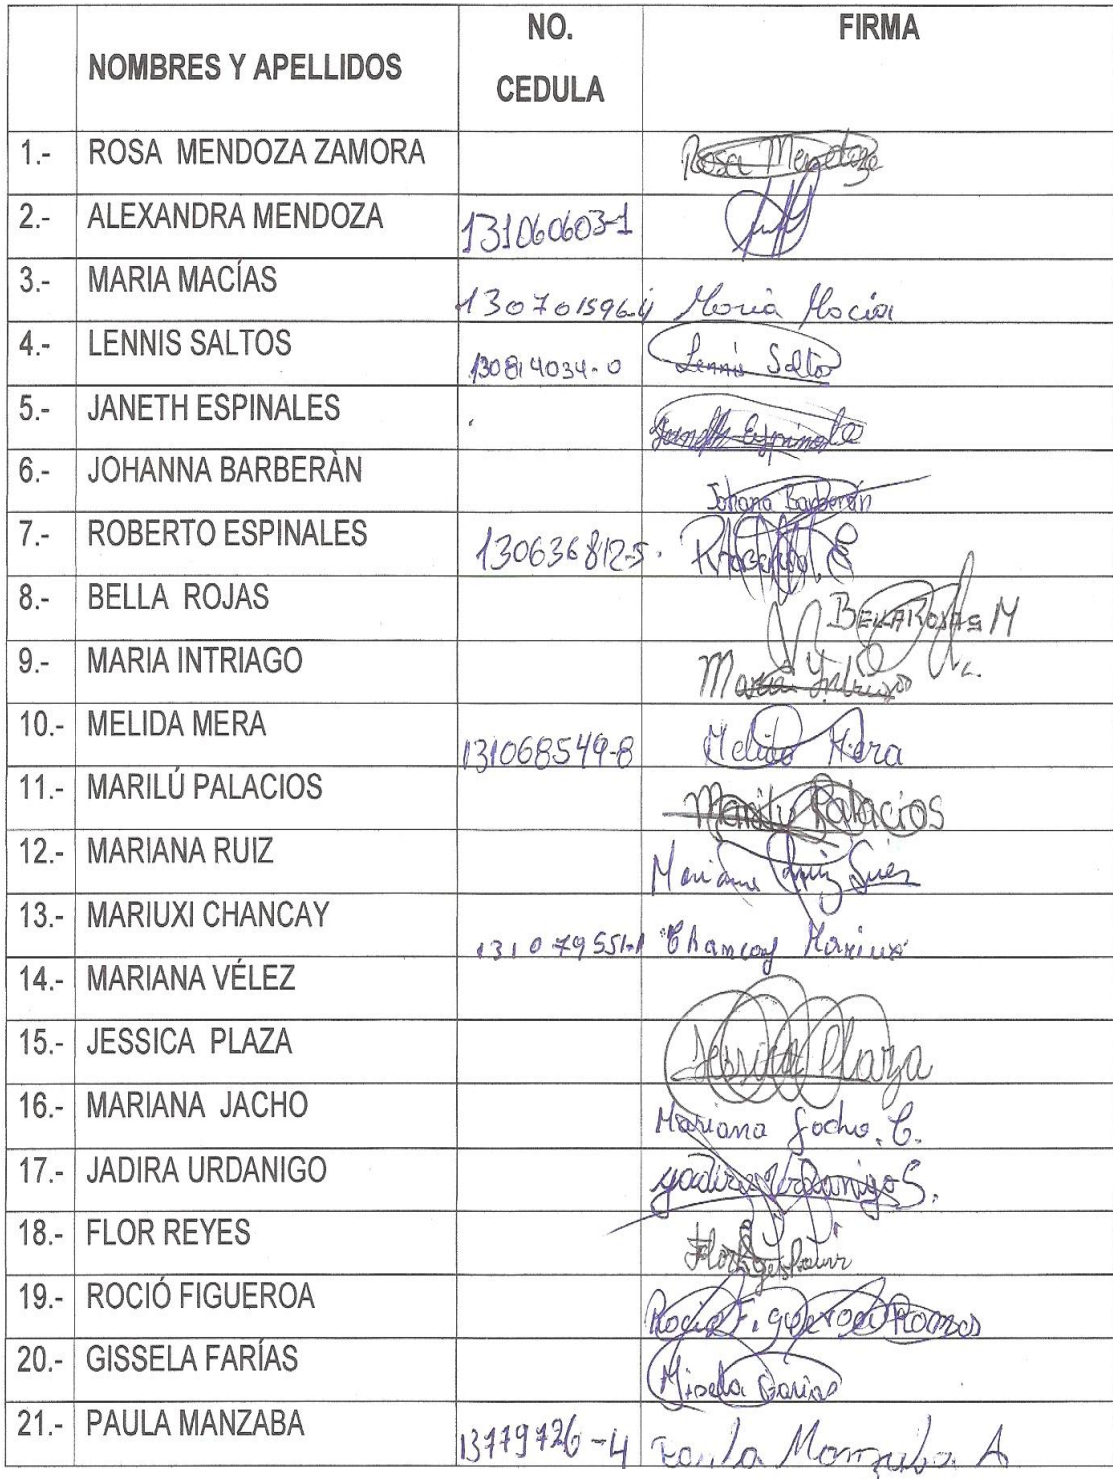 NOMBRES Y APELLIDOS NO. CEDULA FIRMA
1.- ROSA MENDOZA ZAMORA Rosa Mendoza
2.- ALEXANDRA MENDOZA 131060603-1
3.- MARIA MACÍAS 130701596-4 Maria Macías
4.- LENNIS SALTOS 130814034-0 Lennis Saltos
5.- JANETH ESPINALES Janeth Espinales
6.- JOHANNA BARBERÀN Johana Barberán
7.- ROBERTO ESPINALES 130636812-5. Roberto E
8.- BELLA ROJAS BELLA ROJAS M
9.- MARIA INTRIAGO Maria Intriago
10.- MELIDA MERA 131068549-8 Melida Mera
11.- MARILÚ PALACIOS Marilu Palacios
12.- MARIANA RUIZ Mariana Ruiz
13.- MARIUXI CHANCAY 131079551-1 Chancay Mariuxi
14.- MARIANA VÉLEZ
15.- JESSICA PLAZA Jessica Plaza
16.- MARIANA JACHO Mariana Jacho. C.
17.- JADIRA URDANIGO Yadira Urdanigo S.
18.- FLOR REYES Flor
19.- ROCIÓ FIGUEROA Rocio Figueroa Ramos
20.- GISSELA FARÍAS Farias
21.- PAULA MANZABA 13779726-4 Paula Manzaba A